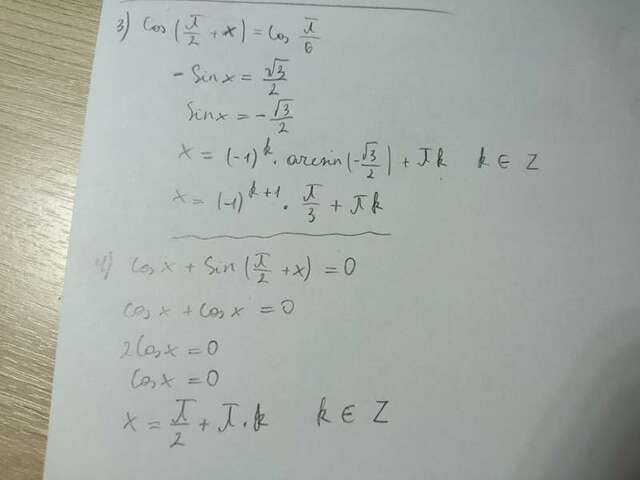 3) cos(π/2 + x) = cos π/6
- sin x = √3/2
sin x = - √3/2
x = (-1)^k · arcsin(-√3/2) + πk k ∈ Z
x = (-1)^k+1 · π/3 + πk
4) cos x + sin(π/2 + x) = 0
cos x + cos x = 0
2cos x = 0
cos x = 0
x = π/2 + π · k k ∈ Z